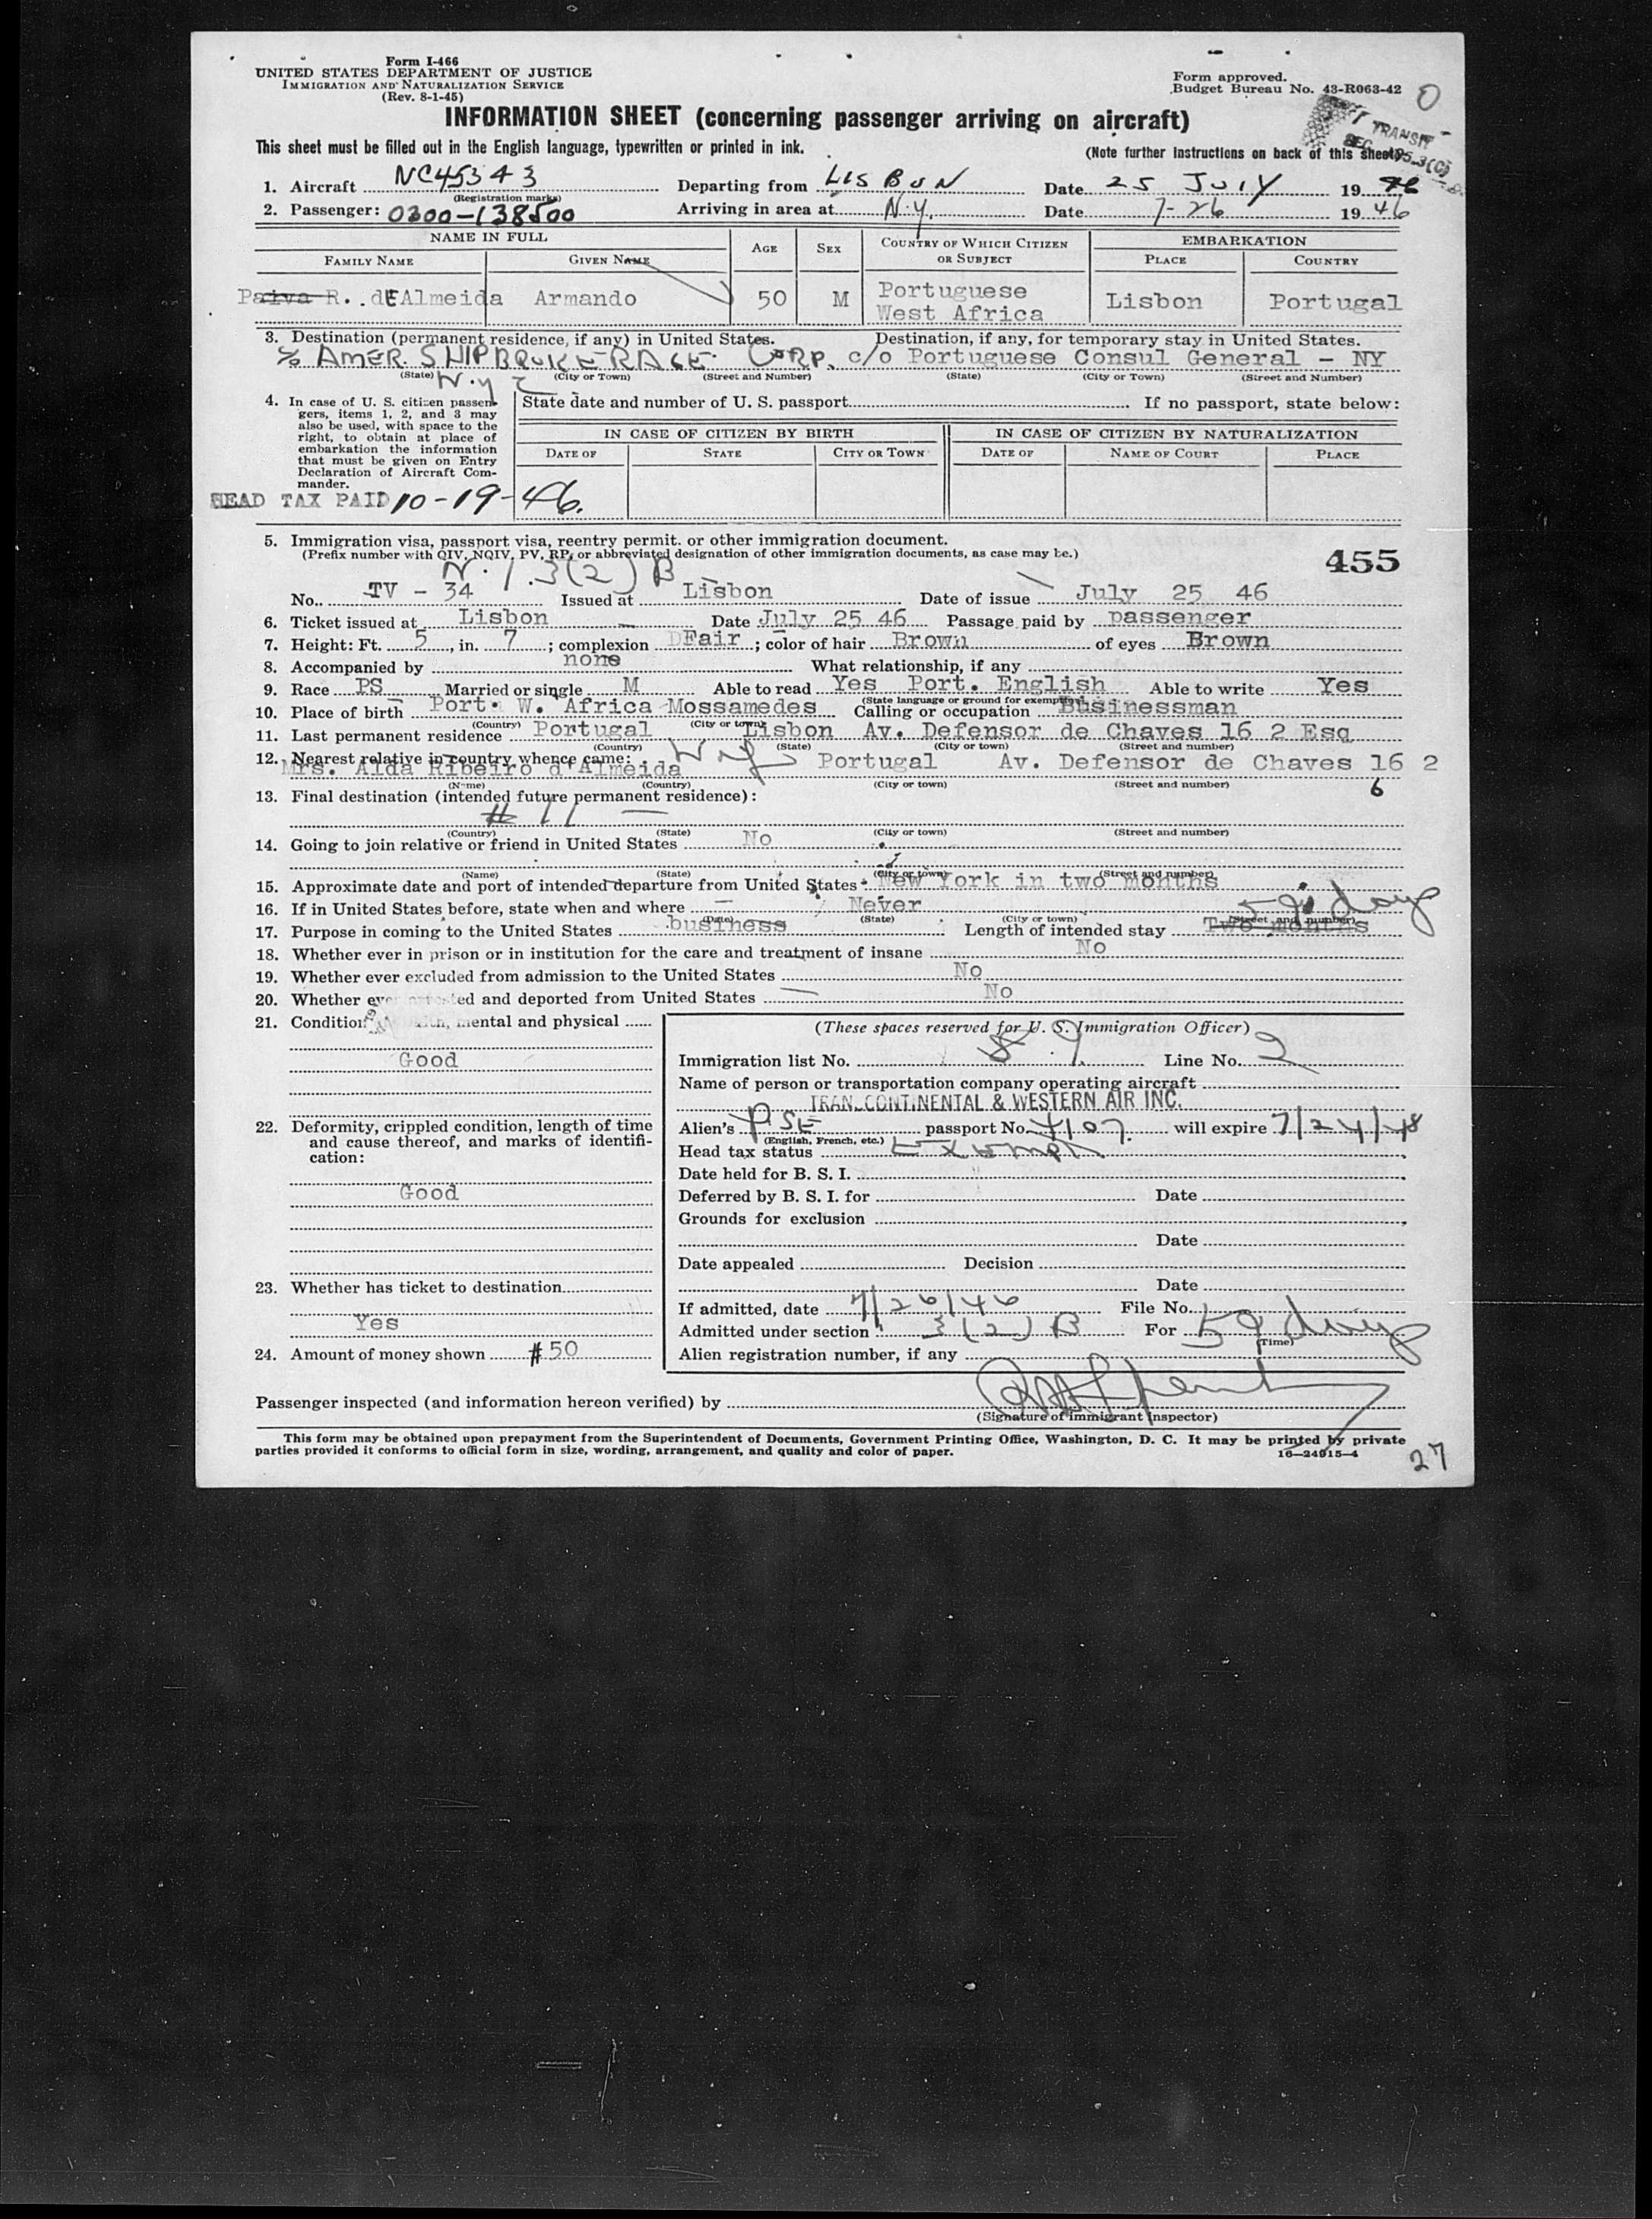 Form I-466
UNITED STATES DEPARTMENT OF JUSTICE
IMMIGRATION AND NATURALIZATION SERVICE
(Rev. 8-1-45)
Form approved.
Budget Bureau No. 43-R063-42
0
INFORMATION SHEET (concerning passenger arriving on aircraft)
TRANSIT
This sheet must be filled out in the English language, typewritten or printed in ink.
(Note further instructions on back of this sheet)
1. Aircraft NC45343 Departing from LISBON Date 25 JULY 1946
(Registration marks)
2. Passenger: 0300-138500 Arriving in area at N.Y. Date 7-26 1946
NAME IN FULL AGE SEX COUNTRY OF WHICH CITIZEN OR SUBJECT EMBARKATION
FAMILY NAME GIVEN NAME PLACE COUNTRY
Paiva R. dEAlmeida Armando 50 M Portuguese West Africa Lisbon Portugal
3. Destination (permanent residence, if any) in United States. Destination, if any, for temporary stay in United States.
c/o AMER. SHIPBROKERAGE CORP. c/o Portuguese Consul General - NY
(State) (City or Town) (Street and Number) (State) (City or Town) (Street and Number)
N.Y.C
4. In case of U. S. citizen passengers, items 1, 2, and 3 may also be used, with space to the right, to obtain at place of embarkation the information that must be given on Entry Declaration of Aircraft Commander.
State date and number of U. S. passport If no passport, state below:
IN CASE OF CITIZEN BY BIRTH IN CASE OF CITIZEN BY NATURALIZATION
DATE OF STATE CITY OR TOWN DATE OF NAME OF COURT PLACE
HEAD TAX PAID 10-19-46.
5. Immigration visa, passport visa, reentry permit, or other immigration document.
(Prefix number with QIV, NQIV, PV, RP, or abbreviated designation of other immigration documents, as case may be.)
455
3(2)B
No. TV - 34 Issued at Lisbon Date of issue July 25 46
6. Ticket issued at Lisbon Date July 25 46 Passage paid by passenger
7. Height: Ft. 5, in. 7; complexion Fair; color of hair Brown of eyes Brown
8. Accompanied by none What relationship, if any
9. Race PS Married or single M Able to read Yes Port. English Able to write Yes
(State language or ground for exemption)
10. Place of birth Port. W. Africa Mossamedes Calling or occupation Businessman
(Country) (City or town)
11. Last permanent residence Portugal Lisbon Av. Defensor de Chaves 16 2 Esq
(Country) (State) (City or town) (Street and number)
12. Nearest relative in country whence came:
Mrs. Alda Ribeiro d'Almeida Portugal Av. Defensor de Chaves 16 2
(Name) (Country) (City or town) (Street and number)
6
13. Final destination (intended future permanent residence):
# 11
(Country) (State) (City or town) (Street and number)
14. Going to join relative or friend in United States No
(Name) (State) (City or town) (Street and number)
15. Approximate date and port of intended departure from United States New York in two months
16. If in United States before, state when and where Never
(Date) (State) (City or town) (Street and number)
59 days
17. Purpose in coming to the United States business Length of intended stay Two months
18. Whether ever in prison or in institution for the care and treatment of insane No
19. Whether ever excluded from admission to the United States No
20. Whether ever arrested and deported from United States No
21. Condition of health, mental and physical
Good
22. Deformity, crippled condition, length of time and cause thereof, and marks of identification:
Good
23. Whether has ticket to destination
Yes
24. Amount of money shown #50
(These spaces reserved for U. S. Immigration Officer)
Immigration list No. 59 Line No. 2
Name of person or transportation company operating aircraft
TRANSCONTINENTAL & WESTERN AIR INC.
Alien's PSE passport No. 4107 will expire 7/24/48
(English, French, etc.)
Head tax status Exempt
Date held for B. S. I.
Deferred by B. S. I. for Date
Grounds for exclusion
Date
Date appealed Decision
Date
If admitted, date 7/26/46 File No.
Admitted under section 3(2)B For 59 days
(Time)
Alien registration number, if any
Passenger inspected (and information hereon verified) by
(Signature of immigrant inspector)
This form may be obtained upon prepayment from the Superintendent of Documents, Government Printing Office, Washington, D. C. It may be printed by private
parties provided it conforms to official form in size, wording, arrangement, and quality and color of paper.
16—24915-4
27